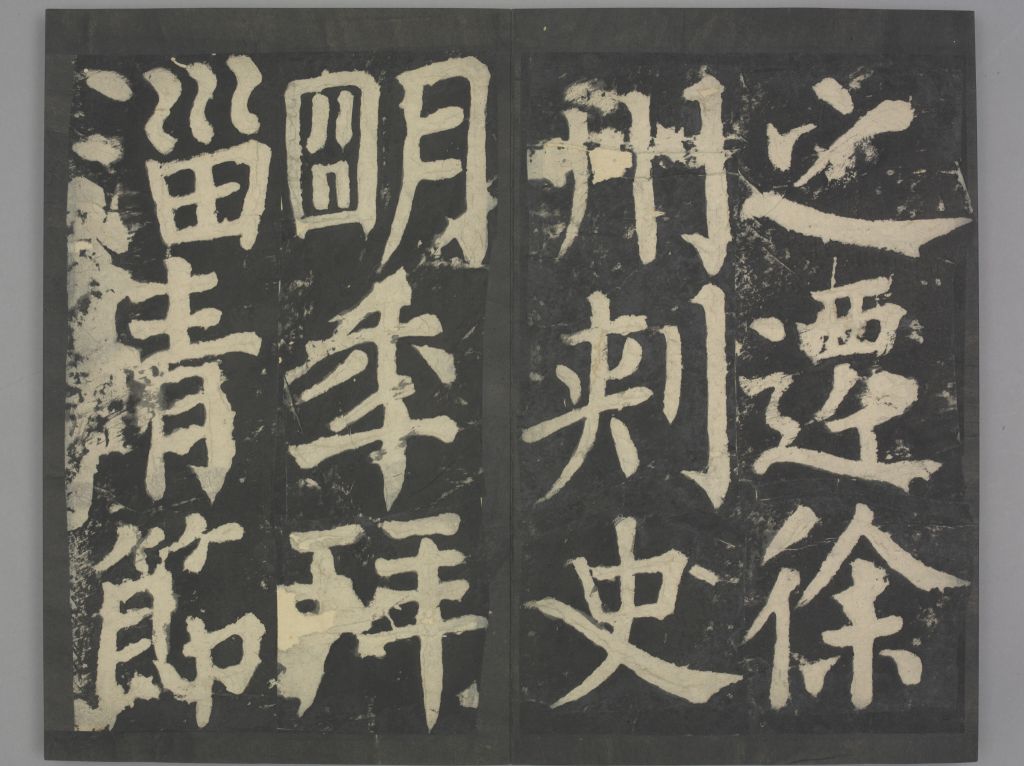 之遷徐
州刺史
明年拜
淄青節